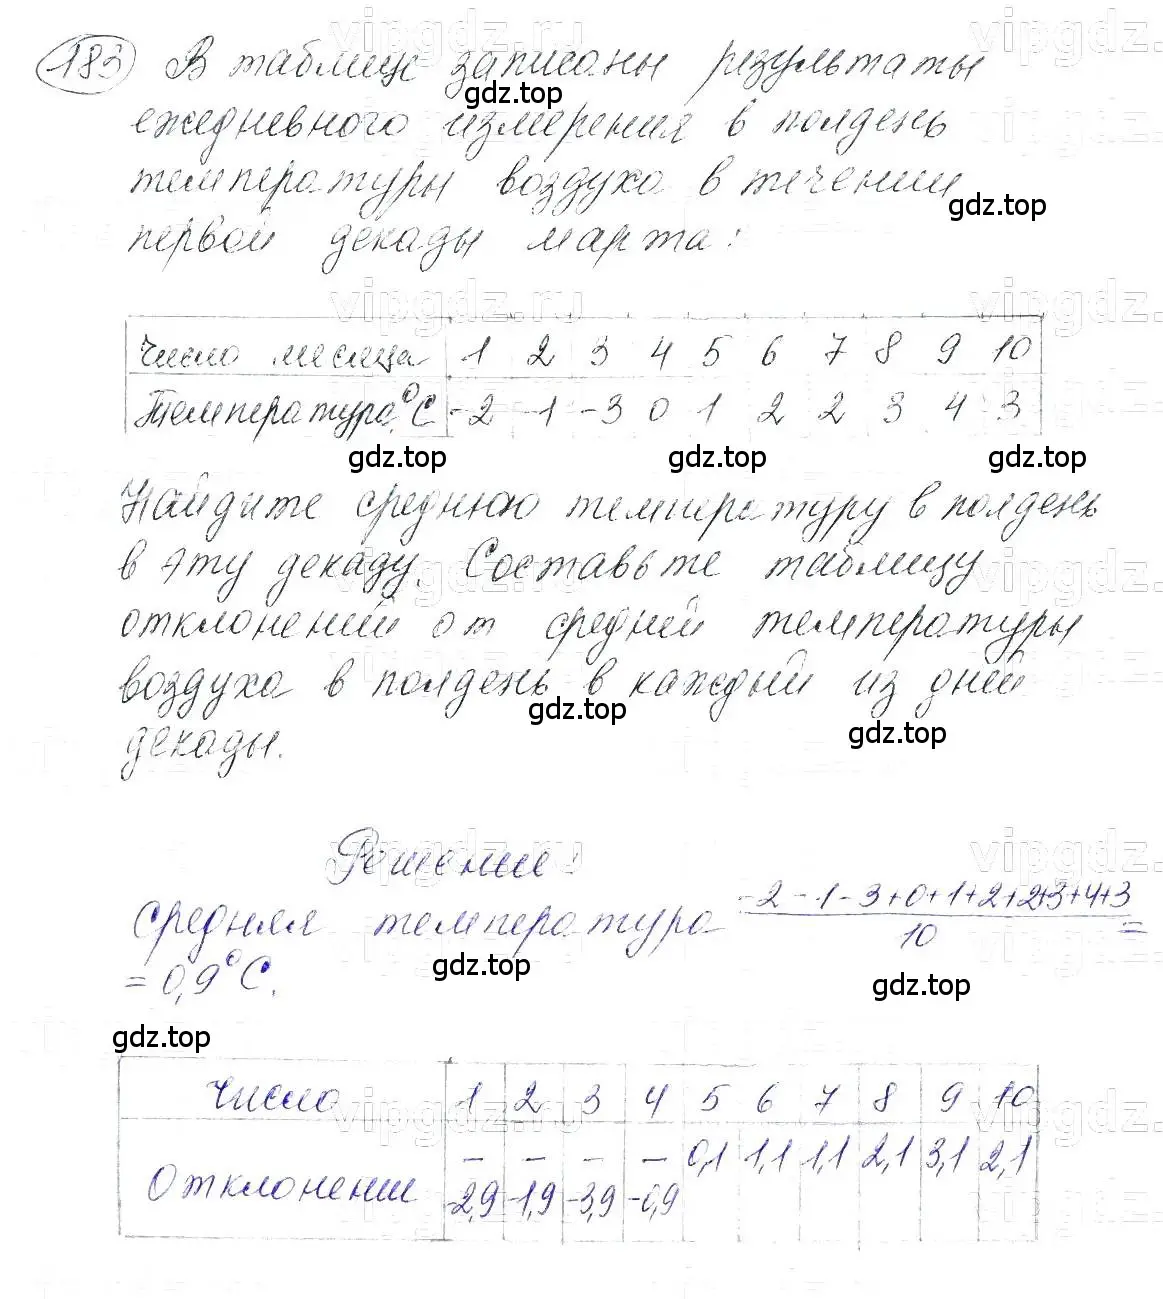 183 В таблице записаны результаты
ежедневного измерения в полдень
температуры воздуха в течении
первой декады марта:
Число месяца 1 2 3 4 5 6 7 8 9 10
Температура, °C -2 -1 -3 0 1 2 2 3 4 3
Найдите среднюю температуру в полдень
в эту декаду. Составьте таблицу
отклонений от средней температуры
воздуха в полдень в каждый из дней
декады.
Решение:
средняя температура -2-1-3+0+1+2+2+3+4+3
10 =
= 0,9°C.
Число 1 2 3 4 5 6 7 8 9 10
Отклонение – – – – 0,1 1,1 1,1 2,1 3,1 2,1
-2,9 -1,9 -3,9 -0,9
gdz.top
gdz.top
gdz.top
gdz.top
gdz.top
gdz.top
gdz.top
gdz.top
gdz.top
gdz.top
vipgdz.ru
vipgdz.ru
vipgdz.ru
vipgdz.ru
vipgdz.ru
vipgdz.ru
vipgdz.ru
vipgdz.ru
vipgdz.ru
vipgdz.ru